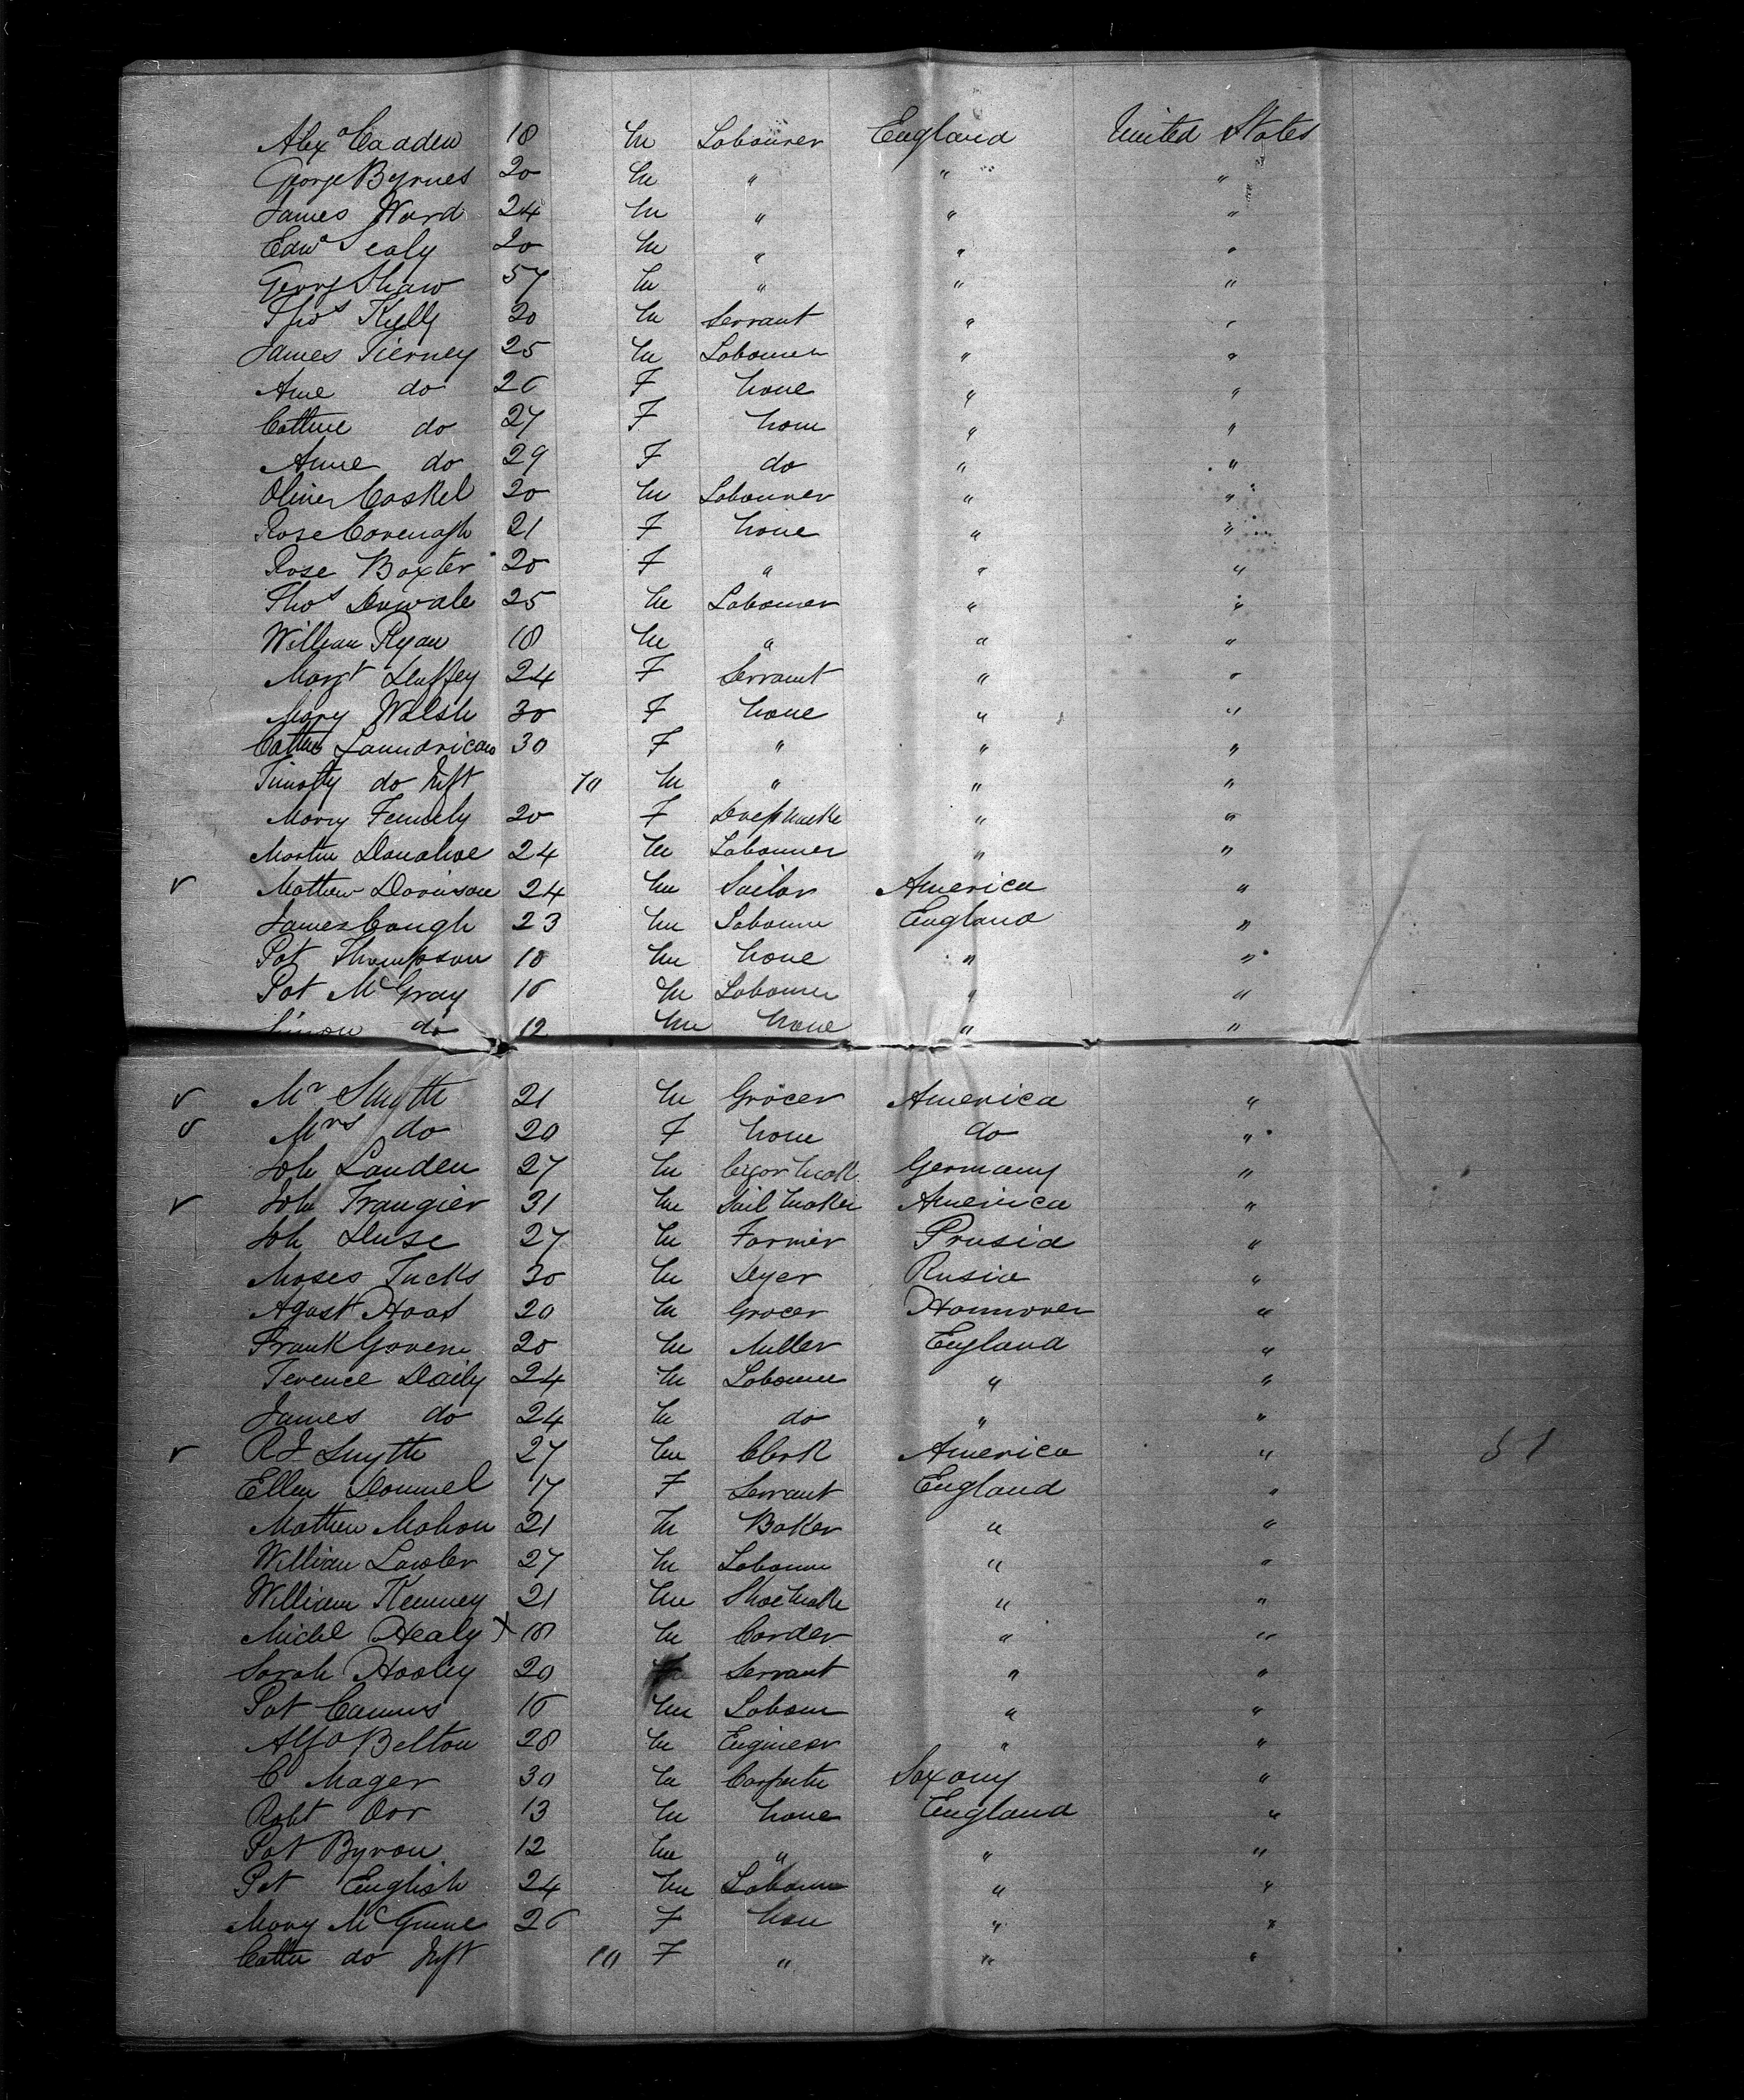 Alexa Cadden 18 M Labourer England United States
George Byrnes 20 M " " "
James Ward 24 M " " "
Edwd Sealy 20 M " " "
George Shaw 57 M " " "
Thos Kelly 20 M Servant " "
James Tierney 25 M Labourer " "
Anne do 26 F None " "
Cathne do 27 F None " "
Anne do 29 F do " "
Oliver Caskel 20 M Labourer " "
Rose Cavenagh 21 F None " "
Rose Baxter 20 F " " "
Thos 25 M Labourer " "
William Ryan 18 M " " "
Margt Duffey 24 F Servant " "
Mary Walsh 30 F None " "
Cathne Laundrican 30 F " " "
Timothy do Inft 10 M " " "
Mary Fennely 20 F Dressmake " "
Martin Donahoe 24 M Labourer " "
Mathew Davison 24 M Sailor America "
James Cough 23 M Labourer England "
Pat Thompson 18 M None " "
Pat McGray 16 M Labourer " "
Simon do 12 M None " "
Mr Smyth 21 M Grocer America "
Mrs do 20 F None do "
Joh Landen 27 M Cigar Mak Germany "
Joh Frangier 31 M Sail Maker America "
Joh Duse 27 M Farmer Prusia "
Moses Tucks 30 M Dyer Rusia "
Agust Haas 20 M Grocer Hannover "
Frank Govern 20 M Miller England "
Terence Daily 24 M Labourer " "
James do 24 M do " "
R J Smyth 27 M Clerk America " 51
Ellen Donnel 17 F Servant England "
Mathew Mahon 21 M Baker " "
William Lawler 27 M Labourer " "
William Kenney 21 M Shoe Make " "
Michl Healy X 18 M Carder " "
Sarah Hooley 20 Servant " "
Pat Camus 16 M Labour " "
Alfd Belton 28 M Engineer " "
C Mager 30 M Carpenter Saxony "
Robt Orr 13 M None England "
Pat Byron 12 M " " "
Pat English 24 M Labourer " "
Mary McGuine 26 F None " "
Cathe do Inft 10 F " " "